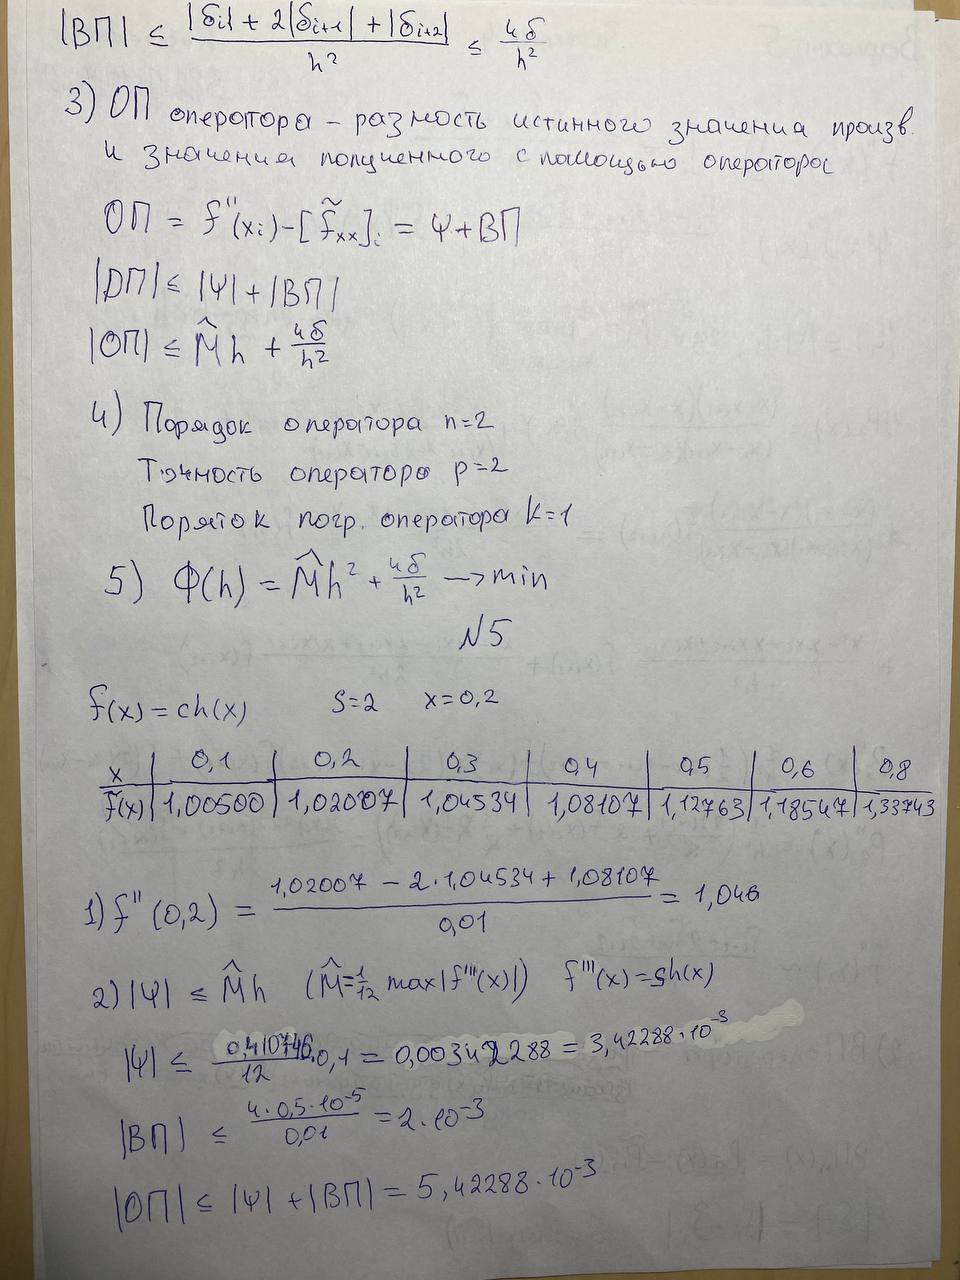 |ВП| ≤ (|δi| + 2|δi+1| + |δi+2|)/h² ≤ 4δ/h²
3) ОП оператора – разность истинного значения произв.
и значения полученного с помощью оператора
ОП = f''(xi) – [f̃xx]i = Ψ + ВП
|ОП| ≤ |Ψ| + |ВП|
|ОП| ≤ M̂h + 4δ/h²
4) Порядок оператора n=2
Точность оператора p=2
Поряток погр. оператора k=1
5) Φ(h) = M̂h² + 4δ/h² —> min
N5
f(x) = ch(x) S=2 x=0,2
x | 0,1 | 0,2 | 0,3 | 0,4 | 0,5 | 0,6 | 0,8
f(x) | 1,00500 | 1,02007 | 1,04534 | 1,08107 | 1,12763 | 1,18547 | 1,33743
1) f''(0,2) = (1,02007 – 2·1,04534 + 1,08107)/0,01 = 1,046
2) |Ψ| ≤ M̂h (M̂ = 1/12 max|f'''(x)|) f'''(x) = sh(x)
|Ψ| ≤ 0,410746/12 · 0,1 = 0,00342288 = 3,42288·10⁻³
|ВП| ≤ (4·0,5·10⁻⁵)/0,01 = 2·10⁻³
|ОП| ≤ |Ψ| + |ВП| = 5,42288·10⁻³